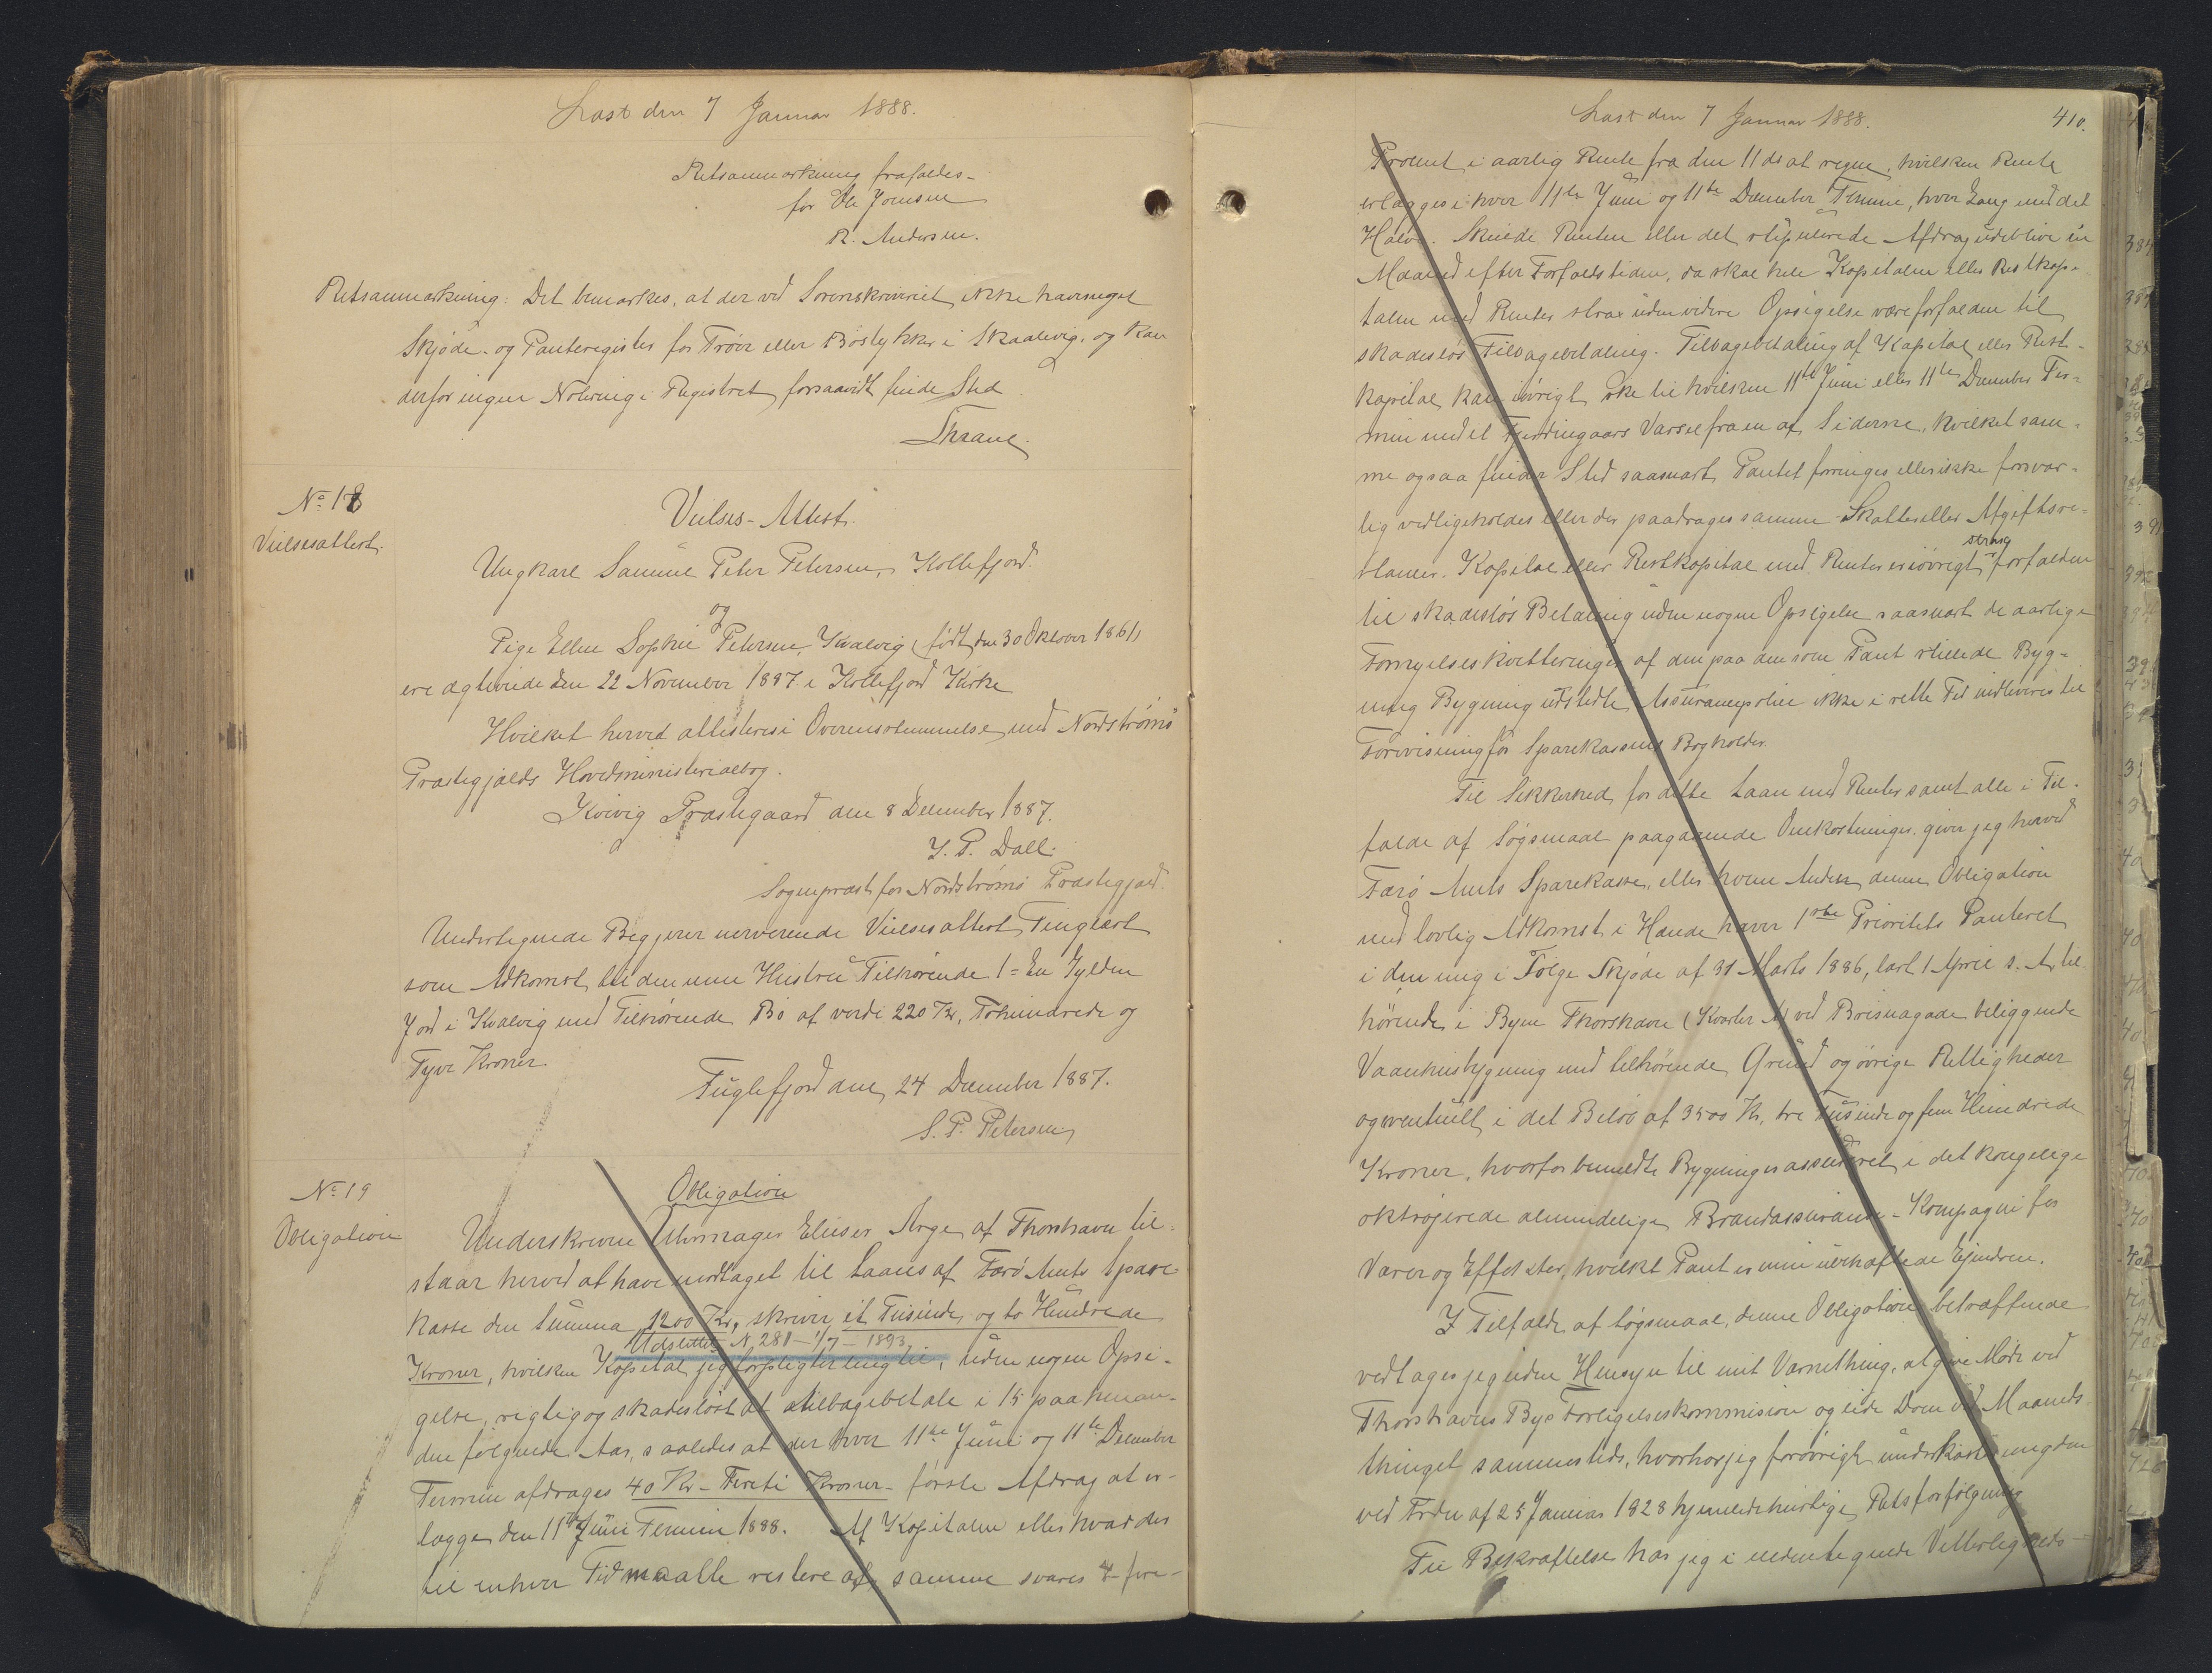 Læst den 7 Januar 1888.
Retsanmærkning frafaldes
for Ole Joensen
R. Andersen.
Retsanmærkning: Det bemærkes, at der ved Sorenskriveriet ikke haves noget
Skjøde- og Panteregister for Trær eller Bøstykker i Skaalevig, og kan
derfor ingen Notering i Registret forsaavidt finde Sted
Thrane.
No 18
Vielsesattest.
Vielses-Attest.
Ungkarl Samuel Peter Petersen, Kollefjord.
og
Pige Ellen Sophie Petersen, Kvalvig (født den 30 Oktober 1861)
ere ægteviede den 22 November 1887 i Kollefjord Kirke
Hvilket herved attesteres i Overensstemmelse med Nordstrømø
Præstegjælds Hovedministerialbog.
Kvivig Præstegaard den 8 December 1887.
J. P. Dall.
Sognepræst for Nordstrømø Præstegjæld.
Undertegnede Begjerer nerverende Vielsesattest Tinglæst
som Adkomst til den min Hustru Tilhørende 1 = En Gylden
Jord i Kvalvig med Tilhørende Bø af verdi 220 Kr, Tohundrede og
Tyve Kroner.
Fuglefjord den 24 December 1887.
S. P. Petersen
No 19
Obligation
Obligation
Underskrevne Uhrmager Elieser Arge af Thorshavn til-
staar herved at have modtaget til Laans af Færø Amts Spare
kasse den Summa 1200 Kr, skriver et Tusinde og to Hundrede
Udslettet N. 281 - 1/7 - 1893
Kroner, hvilken Kapital jeg forpligter mig til, uden nogen Opsi-
gelse, rigtig og skadesløst at tilbagebetale i 15 paa hinan-
den følgende Aar, saaledes at der hver 11te Juni og 11te December
Termin afdrages 40 Kr - Fireti Kroner - første Afdrag at er-
lægge den 11te Juni Termin 1888. Af Kapitalen eller hvad der
til enhver Tid maatte restere af samme svares 4 fire-
Læst den 7 Januar 1888.
410.
Procent i aarlig Rente fra den 11 ds at regne, hvilken Rente
erlægges i hver 11te Juni og 11te December Termin, hver Gang med det
Halve. Skulde Renten eller det stipulerede Afdrag udeblive en
Maaned efter Forfaldstiden, da skal hele Kapitalen eller Restkapi-
talen med Renter strax uden videre Opsigelse være forfalden til
skadesløs Tilbagebetaling. Tilbagebetaling af Kapital eller Rest-
kapital kan iøvrigt ske til hvilken 11te Juni eller 11te December Ter-
min med et Fjerdingaars Varsel fra en af Siderne, hvilket sam-
me ogsaa finder Sted saasnart Pantet forringes eller ikke forsvar-
lig vedligeholdes eller der paadrages samme Skatter eller Afgiftsre-
strax
stancer. Kapital eller Restkapital med Renter er iøvrigt forfalden
til skadesløs Betaling uden nogen Opsigelse saasnart de aarlige
Fornyelseskvitteringer af den paa den som Pant stillede Byg-
ning Bygning udstedte Assurancepolice ikke i rette Tid indleveres til
Forevisning for Sparekassens Bogholder.
Til Sikkerhed for dette Laan med Renter samt alle i Til-
fælde af Søgsmaal paagaaende Omkostninger, giver jeg herved
Færø Amts Sparekasse, eller hvem Anden denne Obligation
med lovlig Adkomst i Hænde haver 1ste Prioritets Panteret
i den mig i Følge Skjøde af 31 Marts 1886, læst 1 April s. A. til-
hørende i Byen Thorshavn (Kvarter A) ved Breisnagade beliggende
Vaanhusbygning med tilhørende Grund og øvrige Rettigheder
og eventuelt i det Beløb af 3500 Kr, tre Tusinde og fem Hundrede
Kroner, hvorfor bemeldte Bygning er assureret i det kongelige
oktrojerede almindelige Brandassurance-Kompagni for
Varer og Effekter, hvilket Pant er min uberhæftede Ejendom.
I Tilfælde af Søgsmaal, denne Obligation betræffende
vedtages jeg uden Hensyn til mit Værnething, at give Møde ved
Thorshavns Byes Forligelseskommision og lide Dom ved Maaneds-
thinget sammesteds, hvorhos jeg forøvrigt underkaster mig den
ved Frdn af 25 Januar 1828 hjemlede hurtige Retsforfølgning
Til Bekræftelse har jeg i undertegnede Vitterligheds-